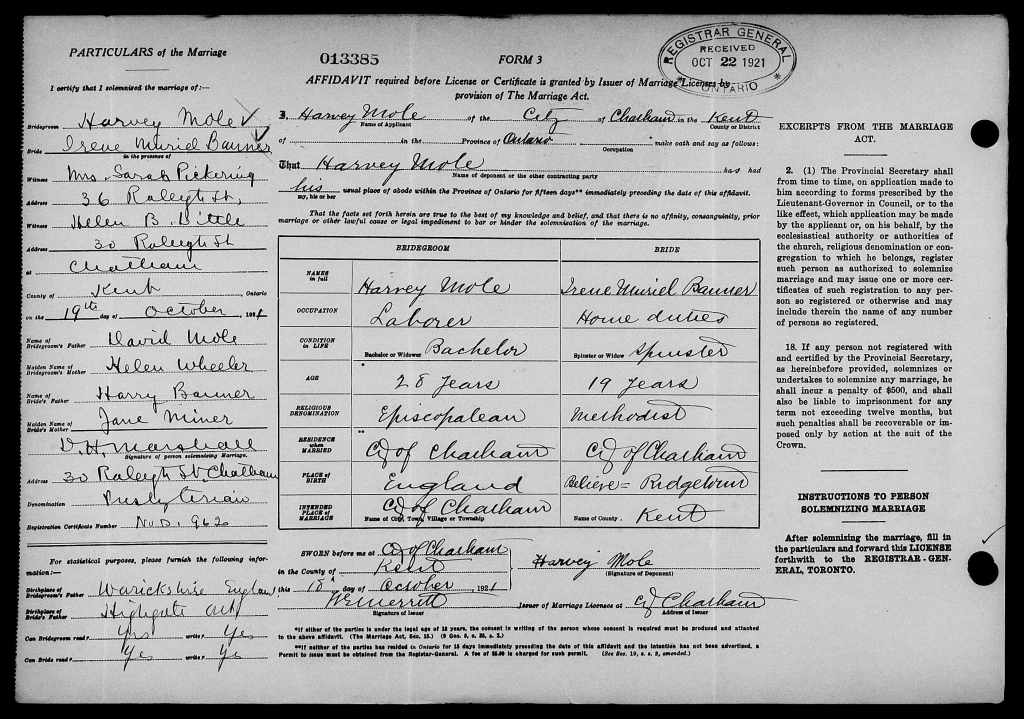 PARTICULARS of the Marriage
I certify that I solemnized the marriage of:—
Bridegroom Harvey Mole
Bride Irene Muriel Banner
in the presence of
Witness Mrs. Sarah Pickering
Address 36 Raleigh St.
Witness Helen B. Little
Address 30 Raleigh St
at Chatham
County of Kent Ontario
on the 19th day of October, 1921
Name of Bridegroom's Father David Mole
Maiden Name of Bridegroom's Mother Helen Wheeler
Name of Bride's Father Harry Banner
Maiden Name of Bride's Mother Jane Miner
D. H. Marshall
Signature of person solemnizing Marriage.
Address 30 Raleigh St. Chatham
Denomination Presbyterian
Registration Certificate Number No. D. 962
For statistical purposes, please furnish the following information:—
Birthplace of Bridegroom's Father Warickshire England
Birthplace of Bride's Father Highgate Ont
Can Bridegroom read? Yes write? Yes
Can Bride read? Yes write? Yes
013385
FORM 3
REGISTRAR GENERAL
RECEIVED
OCT 22 1921
ONTARIO
AFFIDAVIT required before License or Certificate is granted by Issuer of Marriage Licenses by
provision of The Marriage Act.
I, Harvey Mole of the City of Chatham in the Kent
Name of Applicant County or District
of in the Province of Ontario make oath and say as follows:
Occupation
That Harvey Mole has had
Name of deponent or the other contracting party
his usual place of abode within the Province of Ontario for fifteen days** immediately preceding the date of this affidavit.
my, his or her
That the facts set forth herein are true to the best of my knowledge and belief, and that there is no affinity, consanguinity, prior
marriage or other lawful cause or legal impediment to bar or hinder the solemnization of the marriage.
BRIDEGROOM BRIDE
NAMES in full Harvey Mole Irene Muriel Banner
OCCUPATION Laborer Home duties
CONDITION in LIFE Bachelor or Widower Bachelor Spinster or Widow Spinster
AGE * 28 Years 19 Years
RELIGIOUS DENOMINATION Episcopalean Methodist
RESIDENCE when MARRIED ** City of Chatham City of Chatham
PLACE OF BIRTH England Believe = Ridgetown
INTENDED PLACE OF MARRIAGE City of Chatham Kent
Name of City, Town, Village or Township Name of County
SWORN before me at City of Chatham
in the County of Kent
this 18 day of October 1921
Harvey Mole
(Signature of Deponent)
W E Merritt Issuer of Marriage Licenses at City Chatham
Signature of Issuer Address of Issuer
*If either of the parties is under the legal age of 18 years, the consent in writing of the person whose consent is required must be produced and attached
to the above affidavit. (The Marriage Act, Sec. 15.)
**If neither of the parties has resided in Ontario for 15 days immediately preceding the date of this affidavit and the intention has not been advertised, a
Permit to issue must be obtained from the Registrar-General. A fee of $5.00 is charged for such permit. (See Sec. 19, s. s. 2, amended.)
EXCERPTS FROM THE MARRIAGE
ACT.
2. (1) The Provincial Secretary shall
from time to time, on application made to
him according to forms prescribed by the
Lieutenant-Governor in Council, or to the
like effect, which application may be made
by the applicant or, on his behalf, by the
ecclesiastical authority or authorities of
the church, religious denomination or con-
gregation to which he belongs, register
such person as authorized to solemnize
marriage and may issue one or more cer-
tificates of such registration to any per-
son so registered or otherwise and may
include therein the name of any number
of persons so registered.
18. If any person not registered with
and certified by the Provincial Secretary,
as hereinbefore provided, solemnizes or
undertakes to solemnize any marriage, he
shall incur a penalty of $500, and shall
also be liable to imprisonment for any
term not exceeding twelve months, but
such penalties shall be recoverable or im-
posed only by action at the suit of the
Crown.
INSTRUCTIONS TO PERSON
SOLEMNIZING MARRIAGE
After solemnizing the marriage, fill in
the particulars and forward this LICENSE
forthwith to the REGISTRAR-GEN-
ERAL, TORONTO.